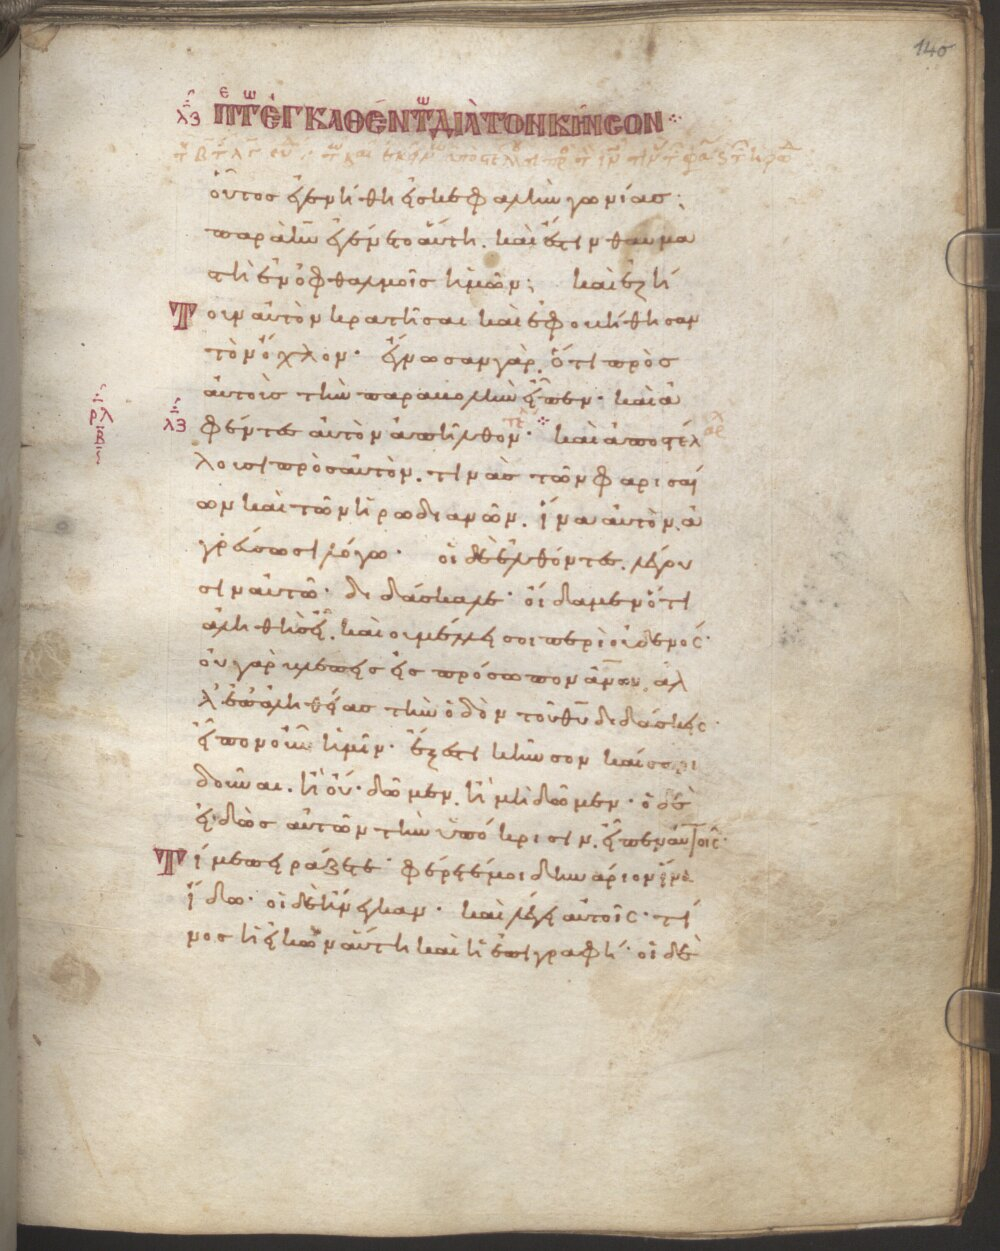 140
λζ ΠΕΡΙ ΤΩΝ ΕΓΚΑΘΕΝΤΩΝ ΔΙΑ ΤΟΝ ΚΗΝΣΟΝ
οὗτος ἐγενήθη εἰς κεφαλὴν γωνίας·
παρὰ κυ ἐγένετο αὕτη. καὶ ἔστιν θαυμα
στὴ ἐν ὀφθαλμοῖς ἡμῶν· καὶ ἐζή
Τουν αὐτὸν κρατῆσαι καὶ ἐφοβήθησαν
τὸν ὄχλον· ἔγνωσαν γὰρ, ὅτι πρὸς
αὐτοὺς τὴν παραβολὴν εἶπεν· καὶ ἀ
λζ φέντες αὐτὸν ἀπῆλθον· καὶ ἀποστέλ
ρλ
λουσι πρὸς αὐτὸν. τινὰς τῶν φαρισαί
ων καὶ τῶν ἡρωδιανῶν. ἵνα αὐτὸν ἀ
γρεύσωσι λόγω· οἱ δὲ ἐλθόντες, λέγου
σιν αὐτῶ· διδάσκαλε· οἴδαμεν ὅτι
ἀληθὴς εἶ. καὶ οὐ μέλλει σοι περὶ οὐδενός·
οὐ γὰρ βλέπεις εἰς πρόσωπον ἀνων. ἀλ
λ' ἐπ' ἀληθείας τὴν ὁδὸν τοῦ θυ διδάσκεις·
εἰπὲ οὖν ἡμῖν· ἔξεστι κῆνσον καίσαρι
δοῦναι. ἢ οὔ· δῶμεν. ἢ μὴ δῶμεν· ὁ δὲ
εἰδὼς αὐτῶν τὴν ὑπόκρισιν. εἶπεν αὐτοῖς·
Τί με πειράζετε· φέρετέ μοι δηνάριον ἵνα
ἴδω· οἱ δὲ ἤνεγκαν· καὶ λέγει αὐτοῖς· τί
νος ἡ εἰκὼν αὕτη καὶ ἡ ἐπιγραφή· οἱ δὲ